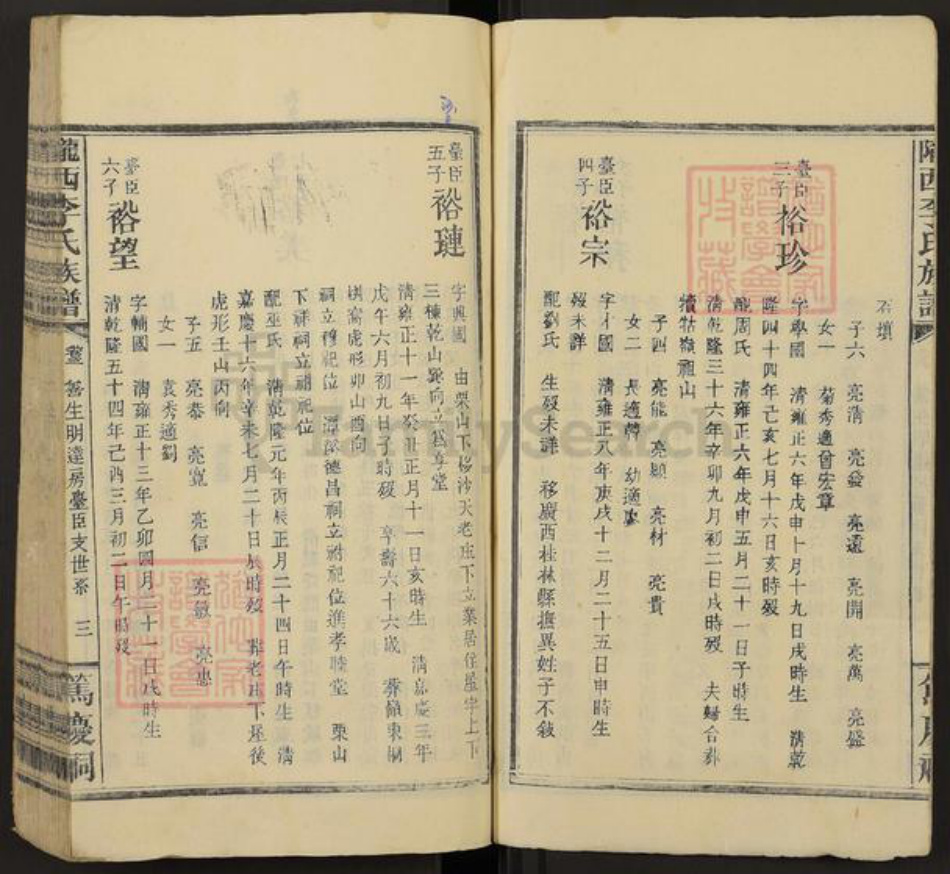 隴西李氏族譜
石墳
子六 亮清 亮發 亮遠 亮開 亮萬 亮盛
女一 菊秀適曾宏章
臺臣三子 裕珍
字學國 清雍正六年戊申十月十九日戌時生 清乾
隆四十四年己亥七月十六日亥時歿
配周氏 清雍正六年戊申五月二十一日子時生
清乾隆三十六年辛卯九月初二日戌時歿 夫婦合葬
犢牯嶺祖山
子四 亮能 亮穎 亮材 亮貴
女二 長適韓 幼適廖
臺臣四子 裕宗
字才國 清雍正八年庚戌十二月二十五日申時生
歿未詳
配劉氏 生歿未詳 移廣西桂林縣撫異姓子不敘
臺臣五子 裕璉
字興國 由栗山下移沙天老庄下立業居住星字上下
三棟乾山巽向立為享堂
清雍正十一年癸丑正月十一日亥時生 清嘉慶三年
戊午六月初九日子時歿 享壽六十六歲 葬嶺東桐
樹窩虎形卯山酉向
祠立穆祀位 潭保德昌祠立祔祀位進孝睦堂 栗山
下祥祠立祔祀位
配巫氏 清乾隆元年丙辰正月二十四日午時生 清
嘉慶十六年辛未七月二十日辰時歿 葬老庄下屋後
虎形壬山丙向
子五 亮恭 亮寬 亮信 亮敏 亮惠
女一 袁秀適劉
臺臣六子 裕望
字輔國 清雍正十三年乙卯四月二十一日戌時生
清乾隆五十四年己酉三月初二日午時歿
隴西李氏族譜 善生明達房臺臣支世系 三 篤慶祠
FamilySearch